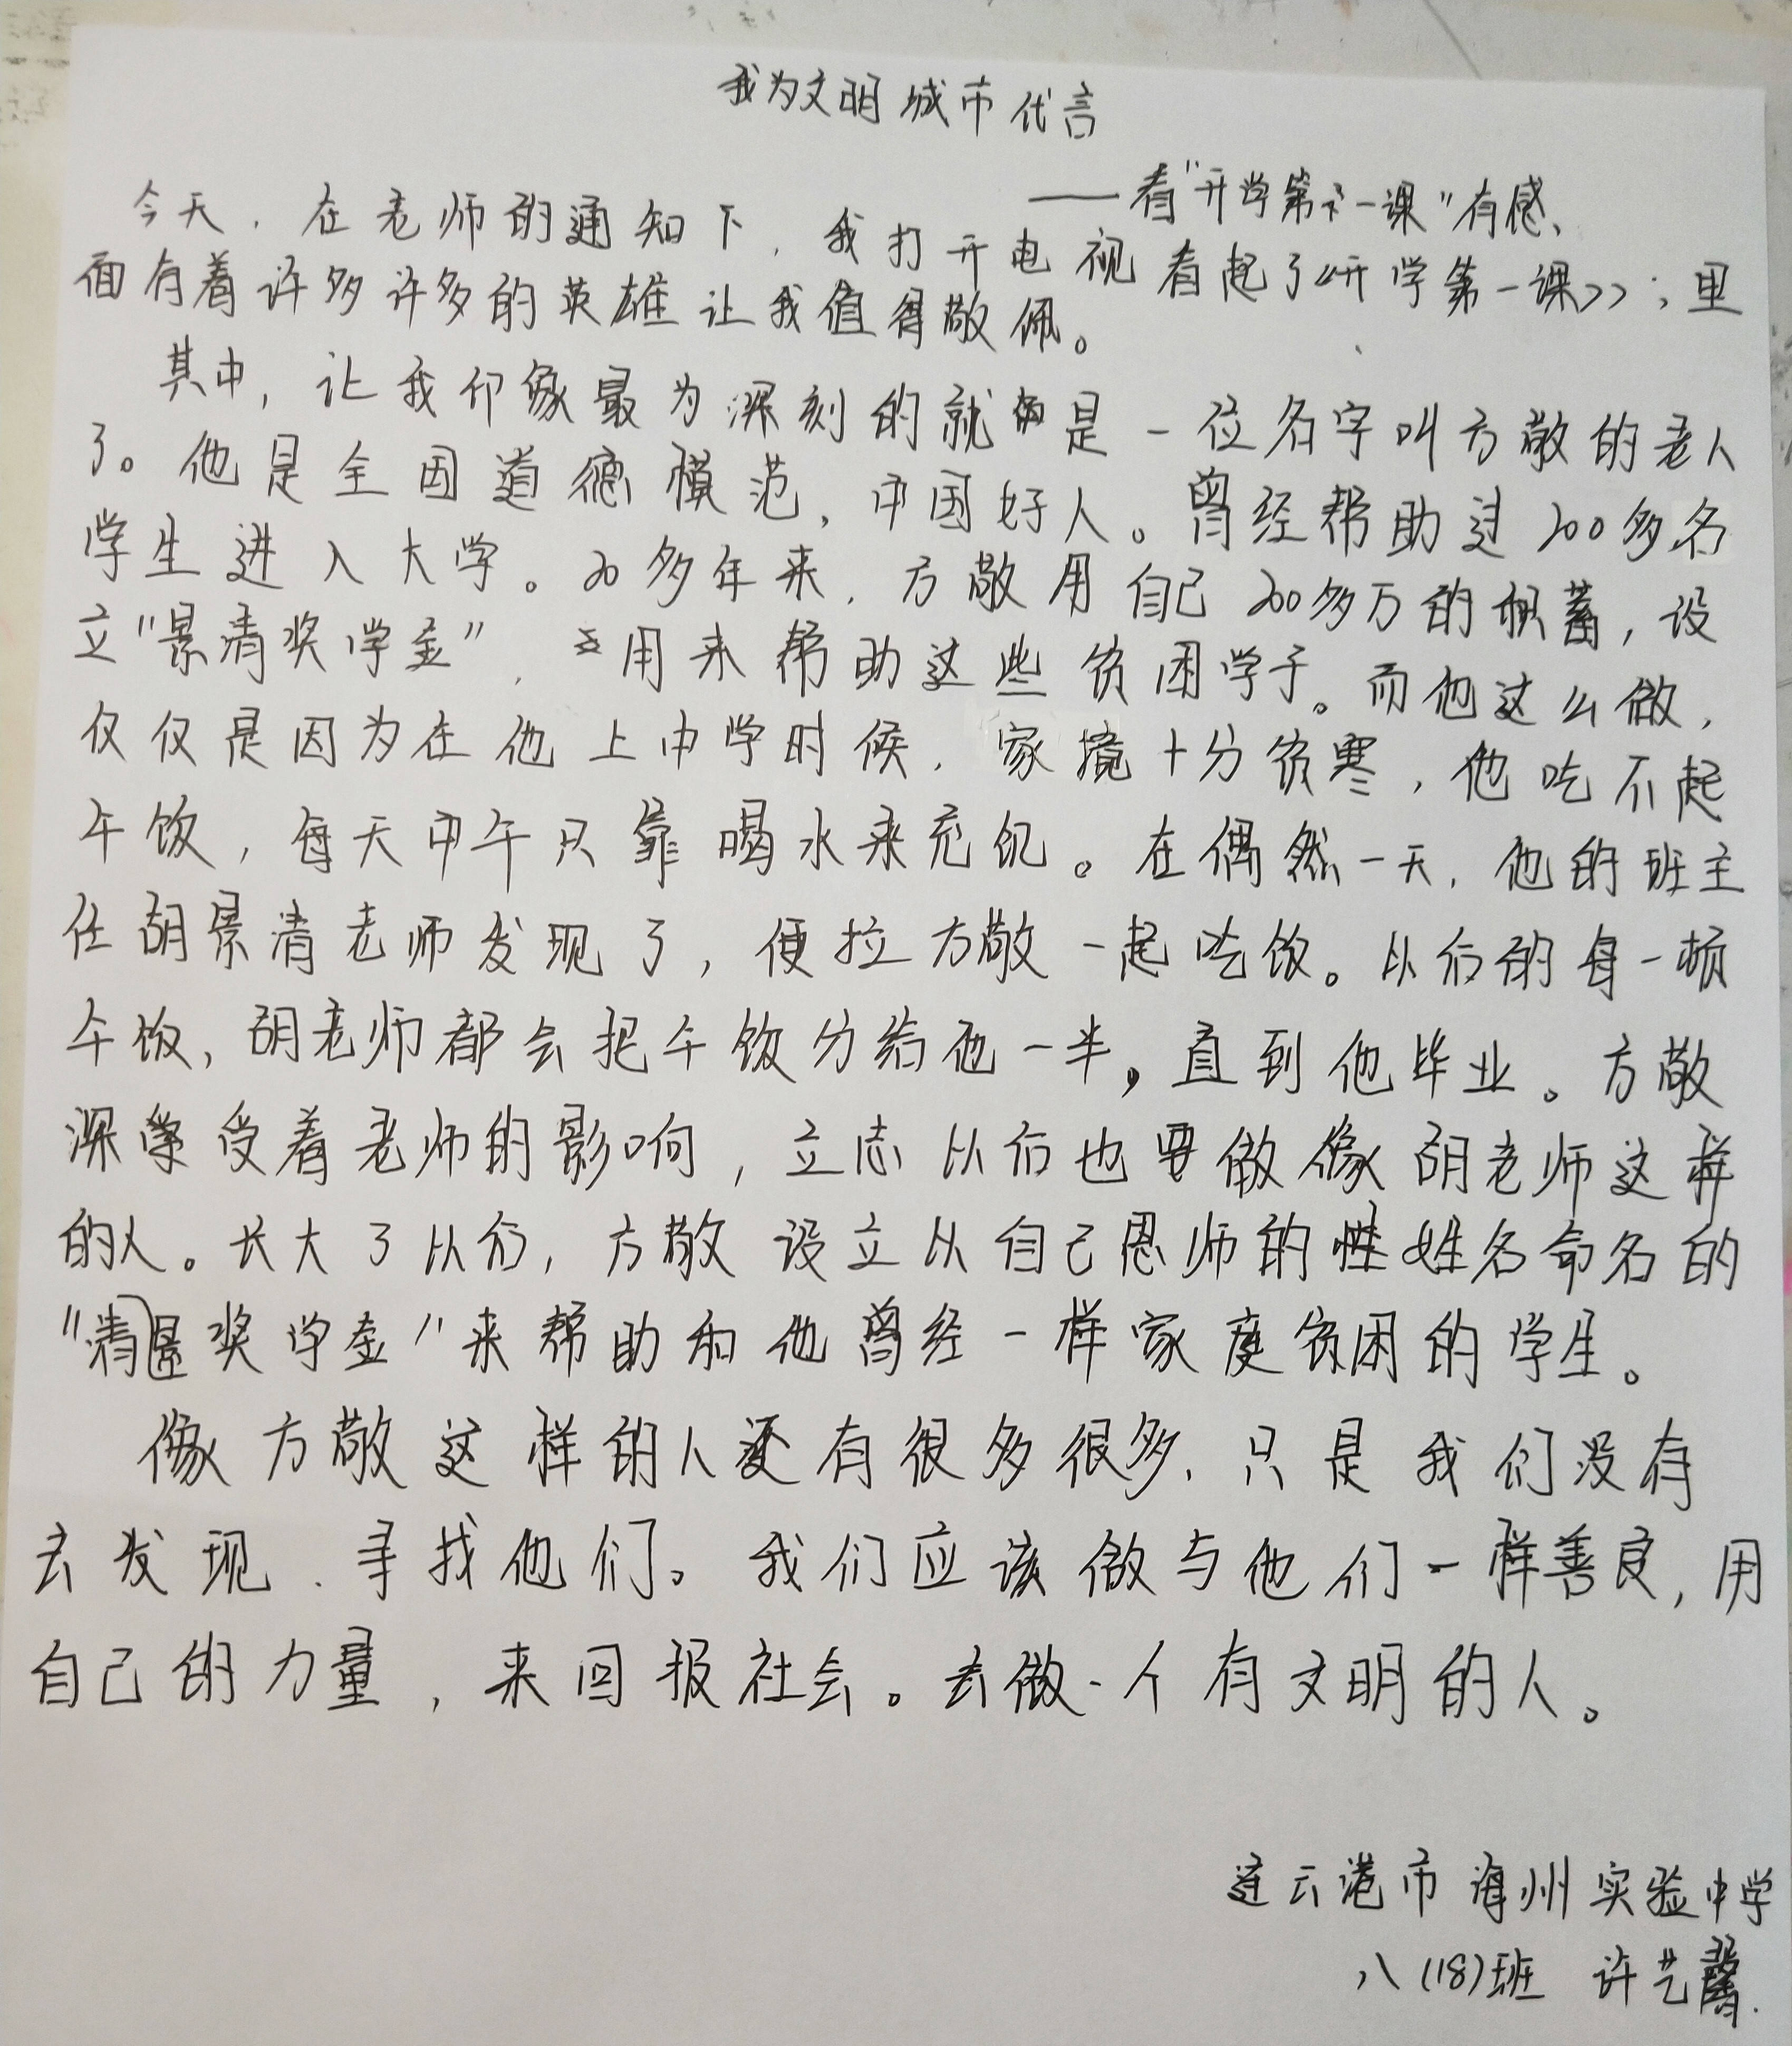 我为文明城市代言
——看"开学第一课"有感、
今天，在老师的通知下，我打开电视看起了《开学第一课》；里
面有着许多许多的英雄让我值得敬佩。
其中，让我印象最为深刻的就是一位名字叫方敬的老人
了。他是全国道德模范，中国好人。曾经帮助过200多名
学生进入大学。20多年来，方敬用自己200多万的积蓄，设
立"景清奖学金"，用来帮助这些贫困学子。而他这么做，
仅仅是因为在他上中学时候，家境十分贫寒，他吃不起
午饭，每天中午只靠喝水来充饥。在偶然一天，他的班主
任胡景清老师发现了，便拉方敬一起吃饭。以后的每一顿
午饭，胡老师都会把午饭分给他一半，直到他毕业。方敬
深受着老师的影响，立志以后也要做像胡老师这样
的人。长大了以后，方敬设立以自己恩师的姓名命名的
"景清奖学金"来帮助和他曾经一样家庭贫困的学生。
像方敬这样的人还有很多很多，只是我们没有
去发现、寻找他们。我们应该做与他们一样善良，用
自己的力量，来回报社会。去做一个有文明的人。
连云港市海州实验中学
八(18)班 许艺馨.